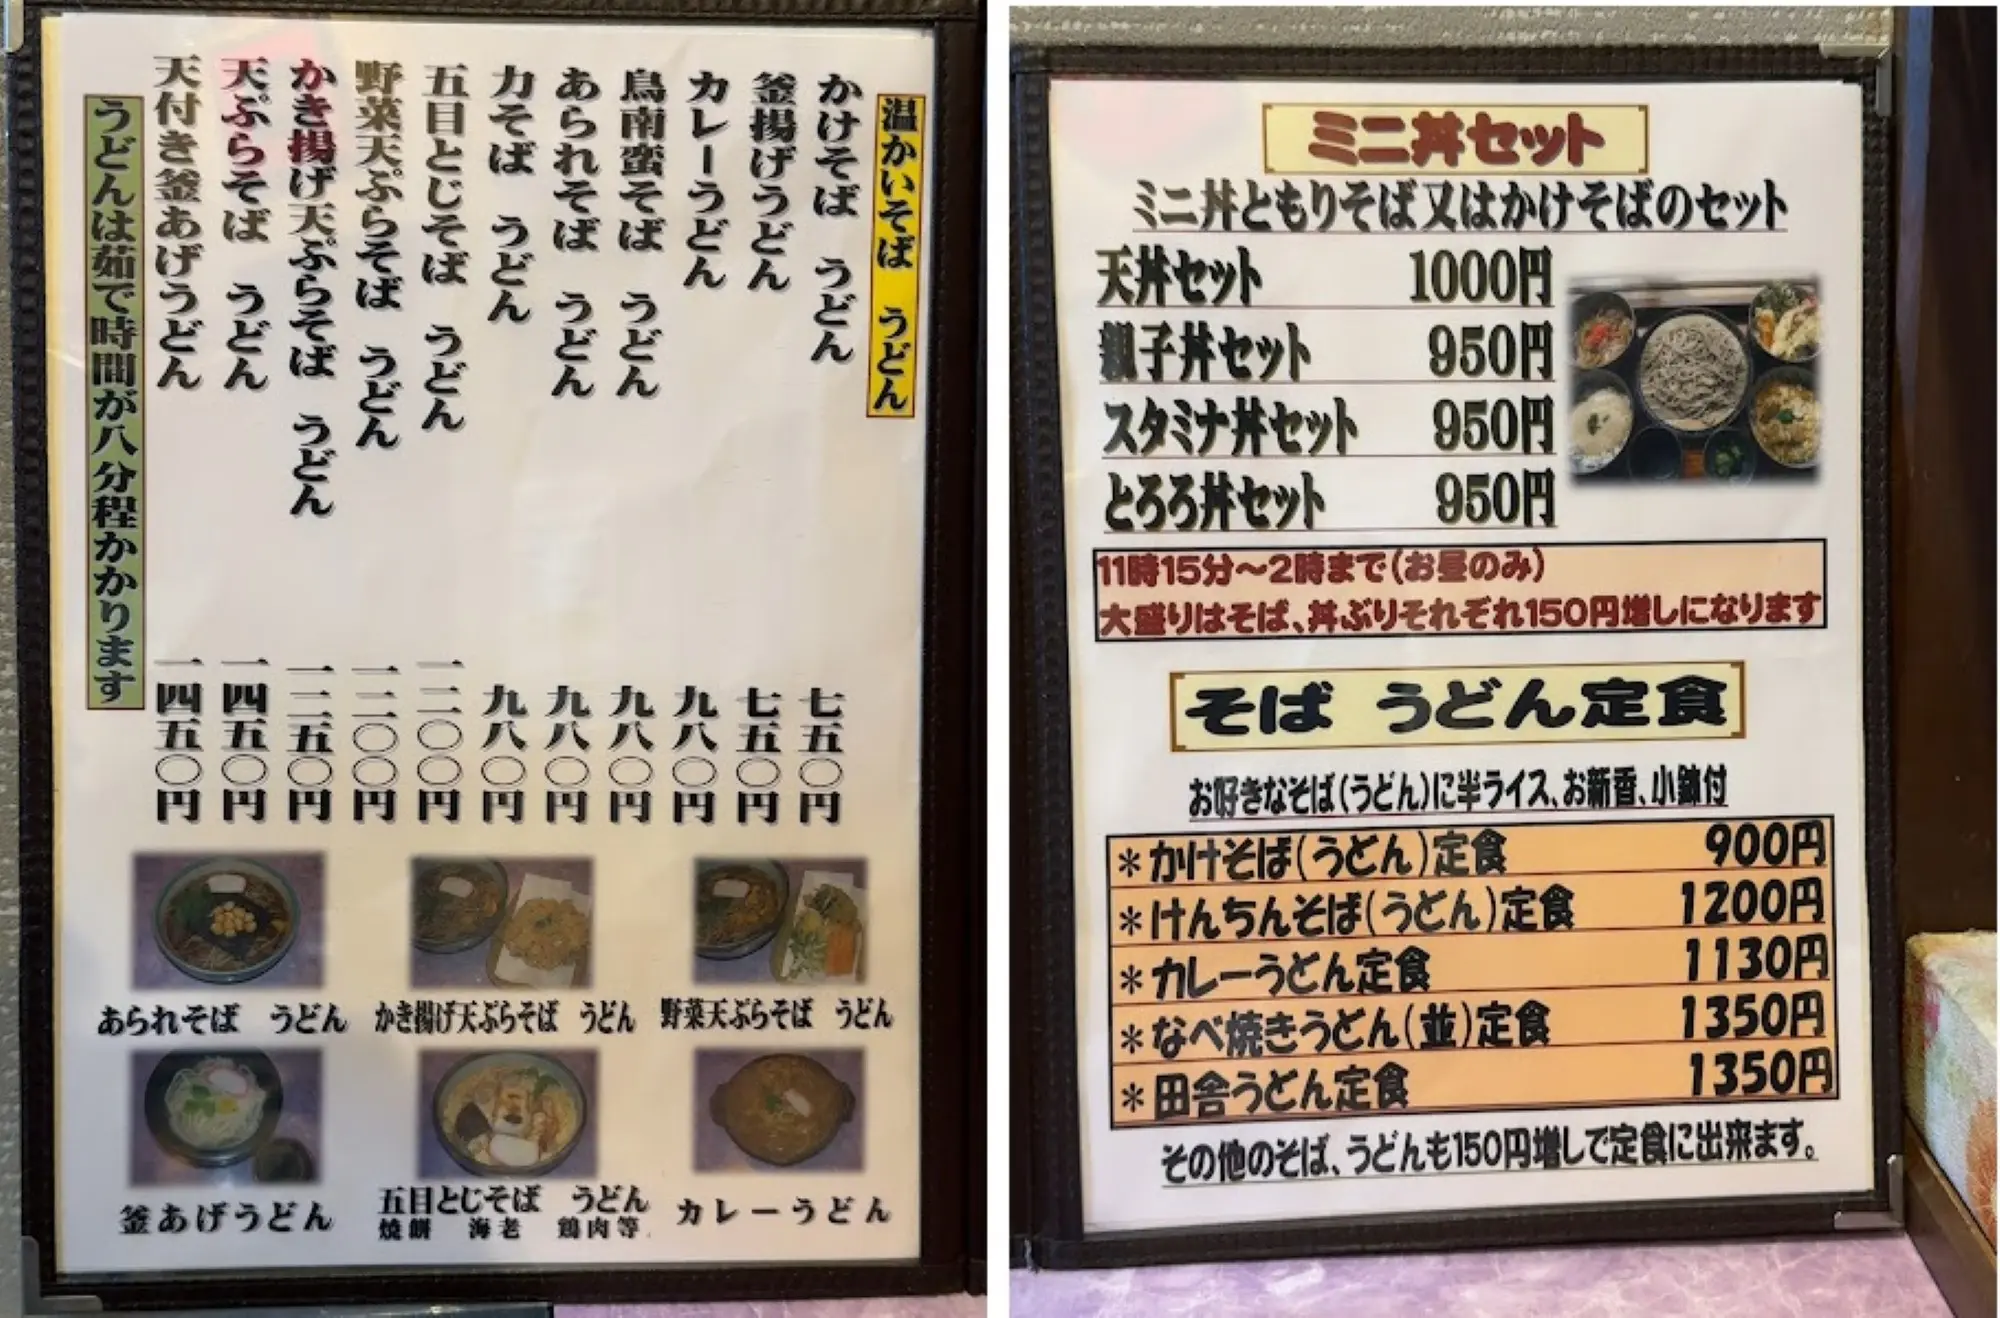 温かいそば　うどん
かけそば　うどん
七五〇円
釜揚げうどん
七五〇円
カレーうどん
九八〇円
鳥南蛮そば　うどん
九八〇円
あられそば　うどん
九八〇円
力そば　うどん
九八〇円
五目とじそば　うどん
一二〇〇円
野菜天ぷらそば　うどん
一二〇〇円
かき揚げ天ぷらそば　うどん
一二五〇円
天ぷらそば　うどん
一四五〇円
天付き釜あげうどん
一四五〇円
うどんは茹で時間が八分程かかります
あられそば　うどん
かき揚げ天ぷらそば　うどん
野菜天ぷらそば　うどん
釜あげうどん
五目とじそば　うどん
焼餅　海老　鶏肉等
カレーうどん
ミニ丼セット
ミニ丼ともりそば又はかけそばのセット
天丼セット 1000円
親子丼セット 950円
スタミナ丼セット 950円
とろろ丼セット 950円
11時15分～2時まで(お昼のみ)
大盛りはそば、丼ぶりそれぞれ150円増しになります
そば うどん定食
お好きなそば(うどん)に半ライス、お新香、小鉢付
＊かけそば(うどん)定食 900円
＊けんちんそば(うどん)定食 1200円
＊カレーうどん定食 1130円
＊なべ焼きうどん(並)定食 1350円
＊田舎うどん定食 1350円
その他のそば、うどんも150円増しで定食に出来ます。